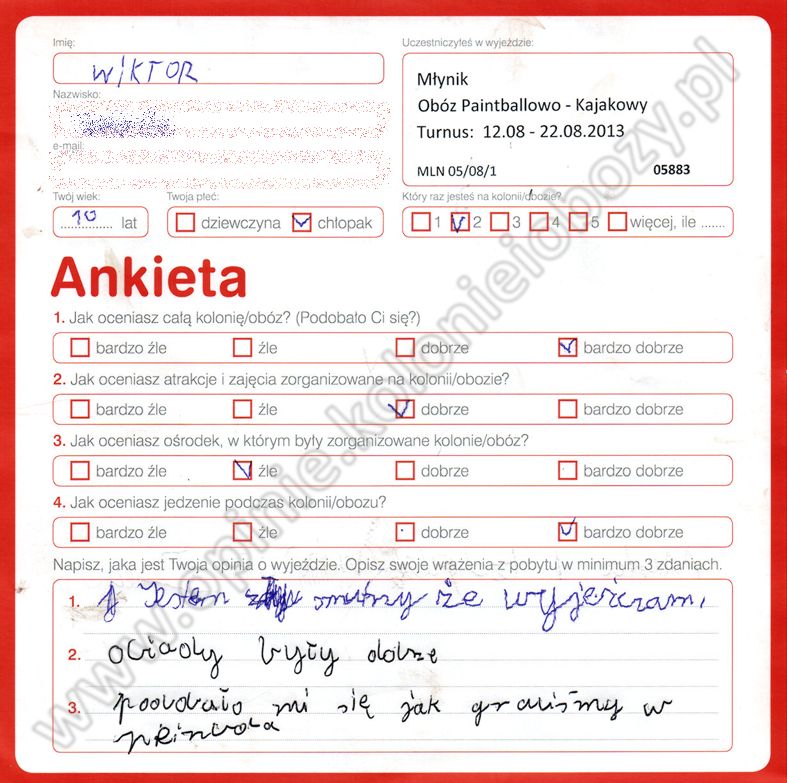 Imię:
WIKTOR
Nazwisko:
e-mail:
Twój wiek:
10 lat
Twoja płeć:
dziewczyna chłopak
Uczestniczyłeś w wyjeździe:
Młynik
Obóz Paintballowo - Kajakowy
Turnus: 12.08 - 22.08.2013
MLN 05/08/1 05883
Który raz jesteś na kolonii/obozie?
1 2 3 4 5 więcej, ile .......
Ankieta
1. Jak oceniasz całą kolonię/obóz? (Podobało Ci się?)
bardzo źle źle dobrze bardzo dobrze
2. Jak oceniasz atrakcje i zajęcia zorganizowane na kolonii/obozie?
bardzo źle źle dobrze bardzo dobrze
3. Jak oceniasz ośrodek, w którym były zorganizowane kolonie/obóz?
bardzo źle źle dobrze bardzo dobrze
4. Jak oceniasz jedzenie podczas kolonii/obozu?
bardzo źle źle dobrze bardzo dobrze
Napisz, jaka jest Twoja opinia o wyjeździe. Opisz swoje wrażenia z pobytu w minimum 3 zdaniach.
1. Jestem smutny że wyjeżczam.
2. obiady były dobrze
3. poodobało mi się jak graliśmy w
www.opinie.kolonieiobozy.pl